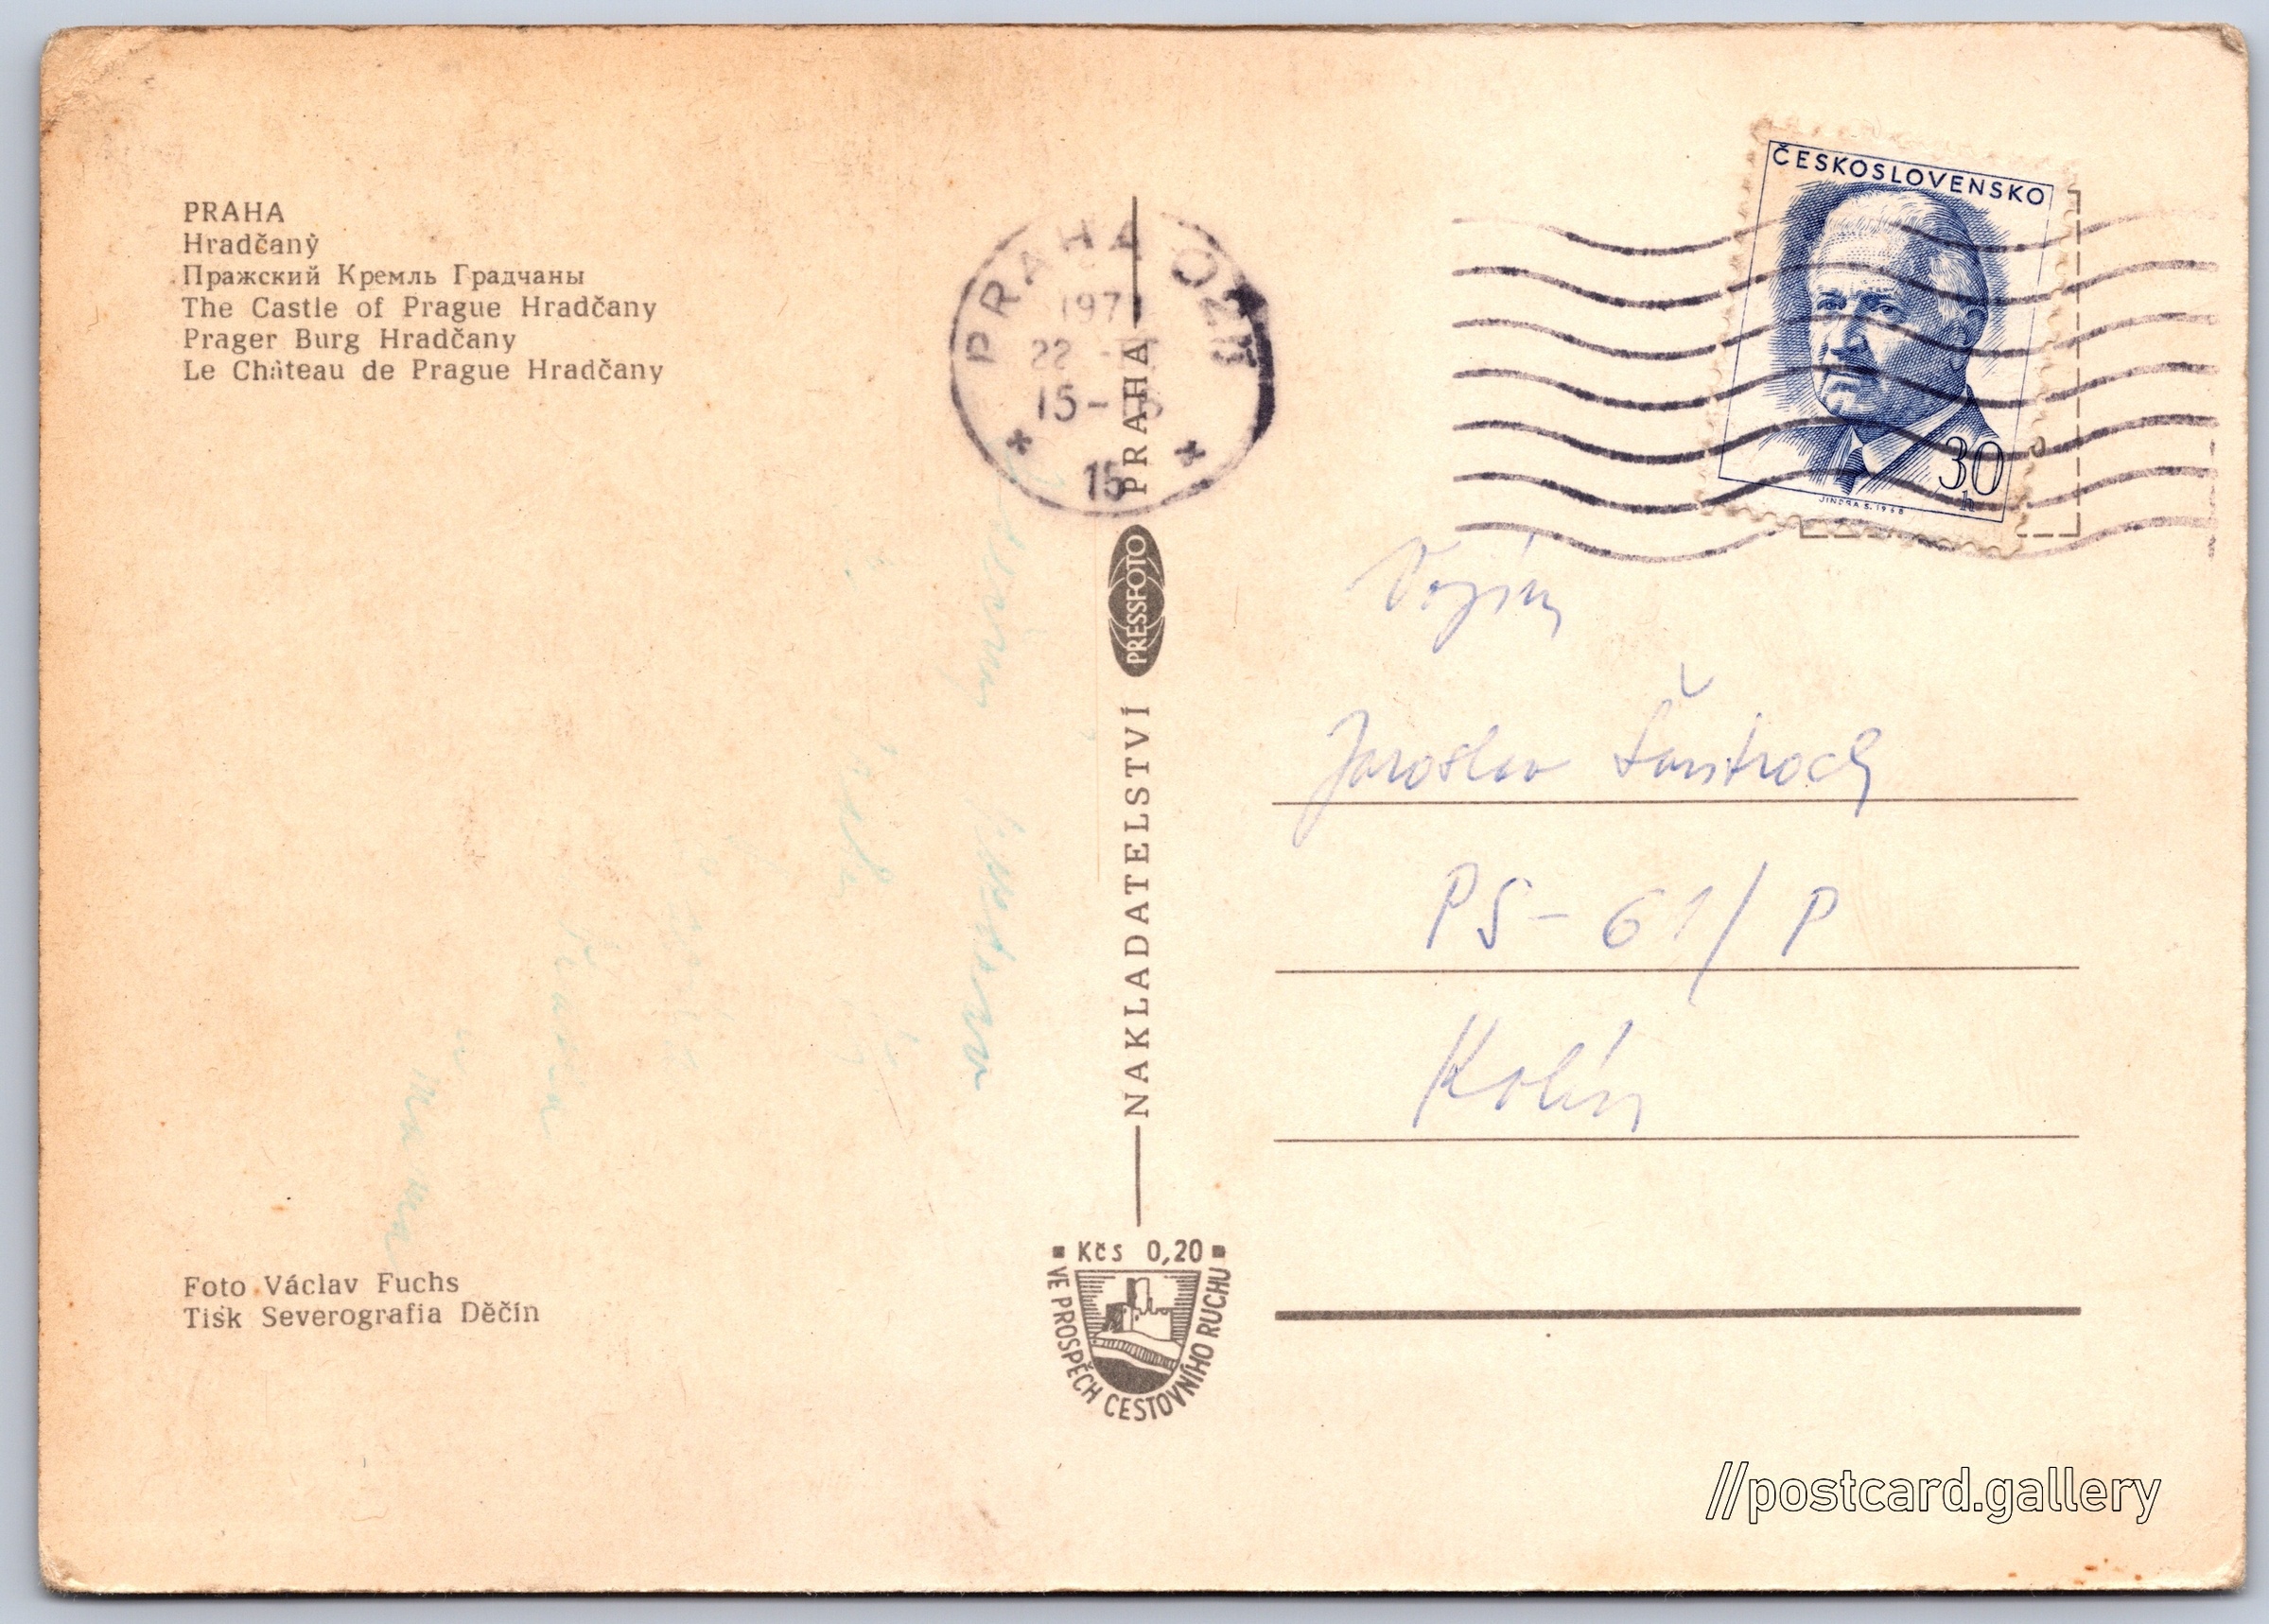 PRAHA
Hradčaný
Пражский Кремль Градчаны
The Castle of Prague Hradčany
Prager Burg Hradčany
Le Château de Prague Hradčany
Foto Václav Fuchs
Tisk Severografia Děčín
PRAHA 02
197
22
15-
15
NAKLADATELSTVÍ PRESSFOTO PRAHA
Kčs 0,20
VE PROSPĚCH CESTOVNÍHO RUCHU
ČESKOSLOVENSKO
30
h
JINDRA S. 1968
Vojín
Jaroslav Šantroch
PS - 61/P
Kolín
//postcard.gallery